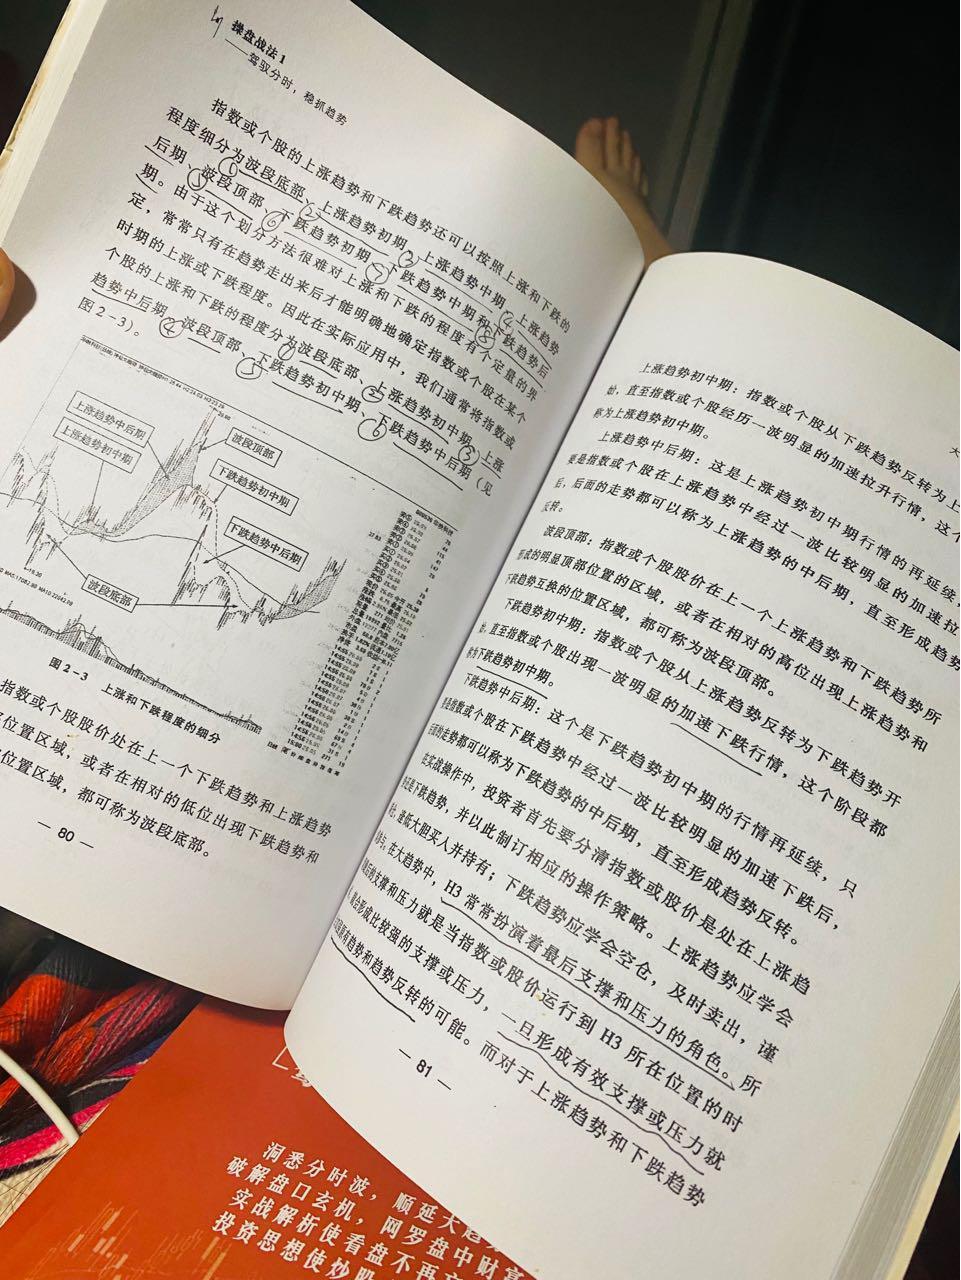 操盘战法1
——驾驭分时，稳抓趋势
指数或个股的上涨趋势和下跌趋势还可以按照上涨和下跌的
程度细分为波段底部、上涨趋势初期、上涨趋势中期、上涨趋势
后期、波段顶部、下跌趋势初期、下跌趋势中期和下跌趋势后
期。由于这个划分方法很难对上涨和下跌的程度有个定量的界
定，常常只有在趋势走出来后才能明确地确定指数或个股在某个
时期的上涨或下跌程度。因此在实际应用中，我们通常将指数或
个股的上涨和下跌的程度分为波段底部、上涨趋势初中期、上涨
趋势中后期、波段顶部、下跌趋势初中期、下跌趋势中后期（见
图2-3）。
上涨趋势中后期
上涨趋势初中期
波段顶部
下跌趋势初中期
下跌趋势中后期
波段底部
图2-3 上涨和下跌程度的细分
指数或个股股价处在上一个下跌趋势和上涨趋势
位置区域，或者在相对的低位出现下跌趋势和
位置区域，都可称为波段底部。
— 80 —
上涨趋势初中期：指数或个股从下跌趋势反转为上
始，直至指数或个股经历一波明显的加速拉升行情，这个
称为上涨趋势初中期。
上涨趋势中后期：这是上涨趋势初中期行情的再延续，
要是指数或个股在上涨趋势中经过一波比较明显的加速拉
后，后面的走势都可以称为上涨趋势的中后期，直至形成趋势
反转。
波段顶部：指数或个股股价在上一个上涨趋势和下跌趋势所
形成的明显顶部位置的区域，或者在相对的高位出现上涨趋势和
下跌趋势互换的位置区域，都可称为波段顶部。
下跌趋势初中期：指数或个股从上涨趋势反转为下跌趋势开
始，直至指数或个股出现一波明显的加速下跌行情，这个阶段都
称为下跌趋势初中期。
下跌趋势中后期：这个是下跌趋势初中期的行情再延续，只
要是指数或个股在下跌趋势中经过一波比较明显的加速下跌后，
后面的走势都可以称为下跌趋势的中后期，直至形成趋势反转。
在实战操作中，投资者首先要分清指数或股价是处在上涨趋
势还是下跌趋势，并以此制订相应的操作策略。上涨趋势应学会
逢低大胆买入并持有；下跌趋势应学会空仓，及时卖出，谨
在大趋势中，H3常常扮演着最后支撑和压力的角色。所
最后的支撑和压力就是当指数或股价运行到H3所在位置的时
会形成比较强的支撑或压力，一旦形成有效支撑或压力就
原有趋势和趋势反转的可能。而对于上涨趋势和下跌趋势
— 81 —
洞悉分时波，顺延大
破解盘口玄机，网罗盘中财富
实战解析使看盘不再
投资思想使炒股